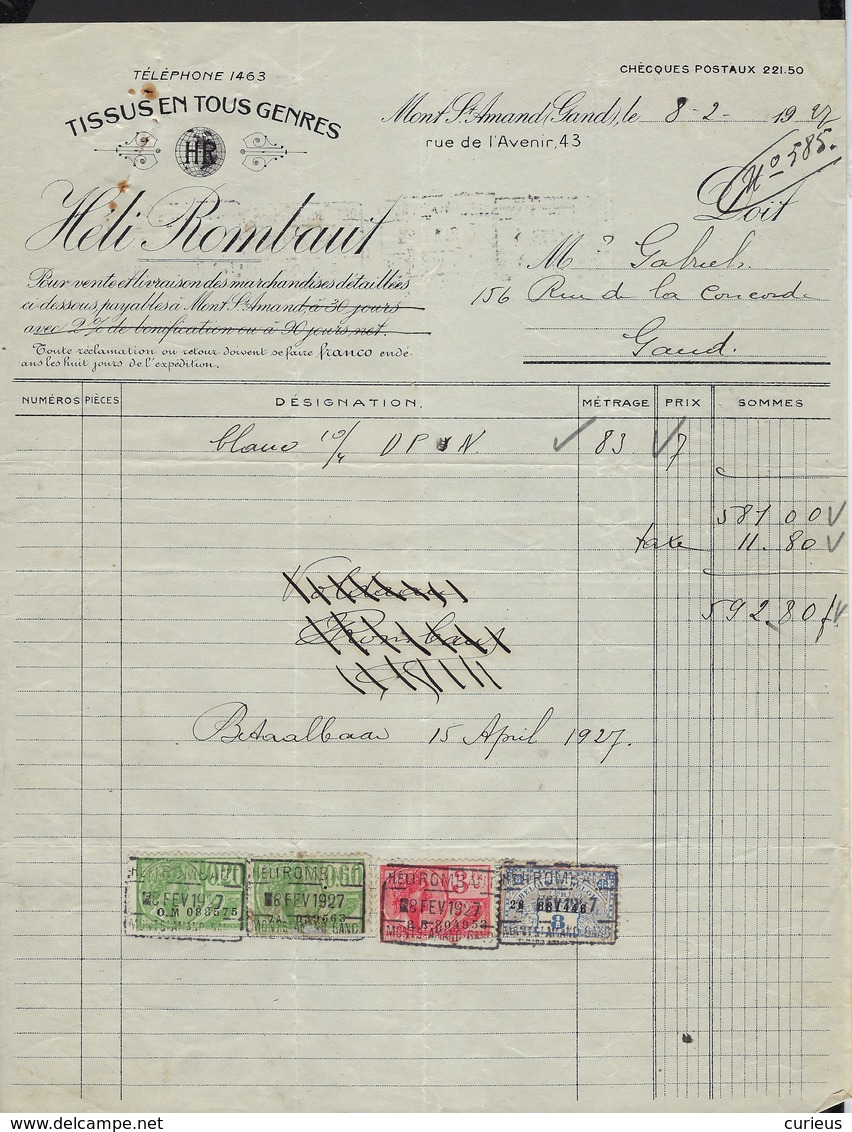 TÉLÉPHONE 1463
CHÈCQUES POSTAUX 221.50
TISSUS EN TOUS GENRES
HR
Mont St Amand (Gand), le 8-2- 1927
rue de l'Avenir, 43
No 585.
Héli Rombaut
Doit
Mr Gabriels
156 Rue de la Concorde
Gand.
Pour vente et livraison des marchandises détaillées
ci-dessous, payables à Mont St Amand, à 30 jours
avec 2% de bonification ou à 90 jours, net.
Toute réclamation ou retour doivent se faire franco endé-
ans les huit jours de l'expédition.
NUMÉROS PIÈCES DÉSIGNATION. MÉTRAGE PRIX SOMMES
blanc 10/4 D P N. 83 7
581 00
taxe 11.80
592.80 f
Rombaut
Betaalbaar 15 April 1927.
HÉLI ROMBAUT HÉLI ROMBAUT HÉLI ROMBAUT HÉLI ROMBAUT
0.60 3 8
8 FEV 1927 8 FEV 1927 8 FEV 1927 8 FEV 1927
O.M 088575
MONT S-AMAND-GAND
curieus